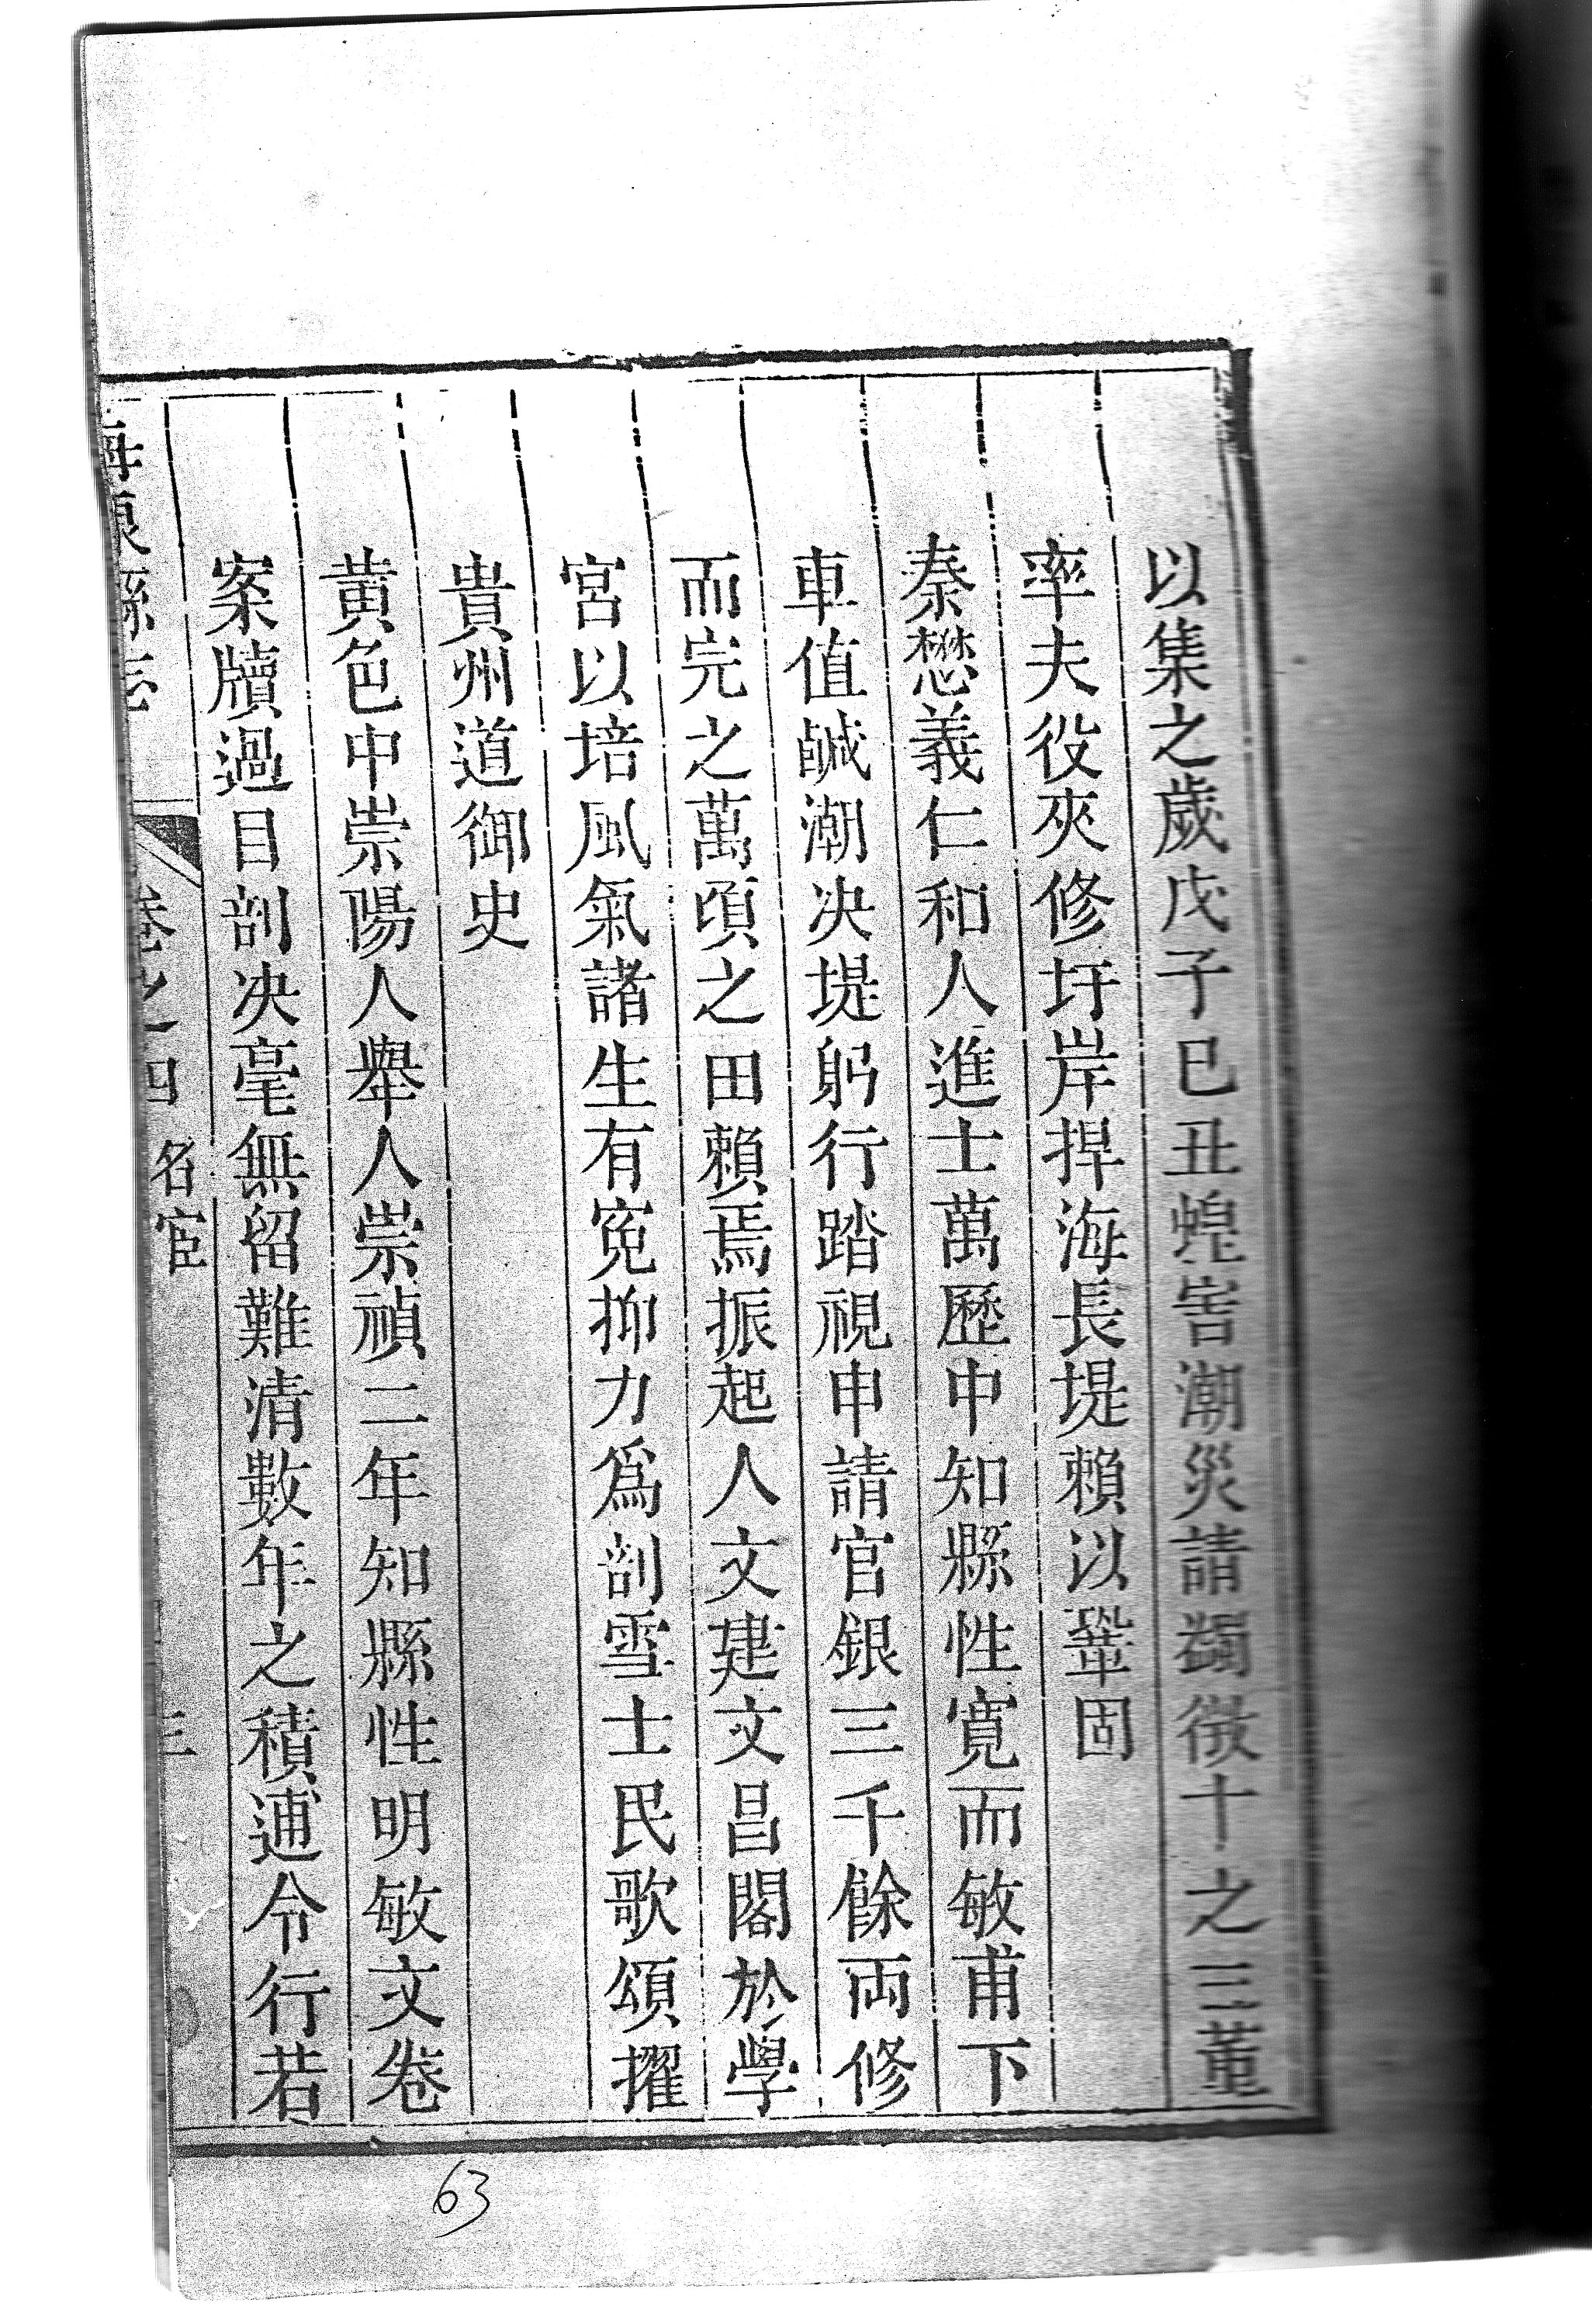 以集之歲戊子巳丑蝗害潮災請蠲徵十之三董
率夫役夾修圩岸捍海長堤賴以鞏固
秦懋義仁和人進士萬歷中知縣性寬而敏甫下
車值鹹潮决堤躬行踏視申請官銀三千餘両修
而完之萬頃之田賴焉振起人文建文昌閣於學
宮以培風氣諸生有寃抑力爲剖雪士民歌頌擢
貴州道御史
黄色中崇陽人舉人崇禎二年知縣性明敏文卷
案牘過目剖决毫無留難清數年之積逋令行若
海康縣志 卷之四 名宦 三
63